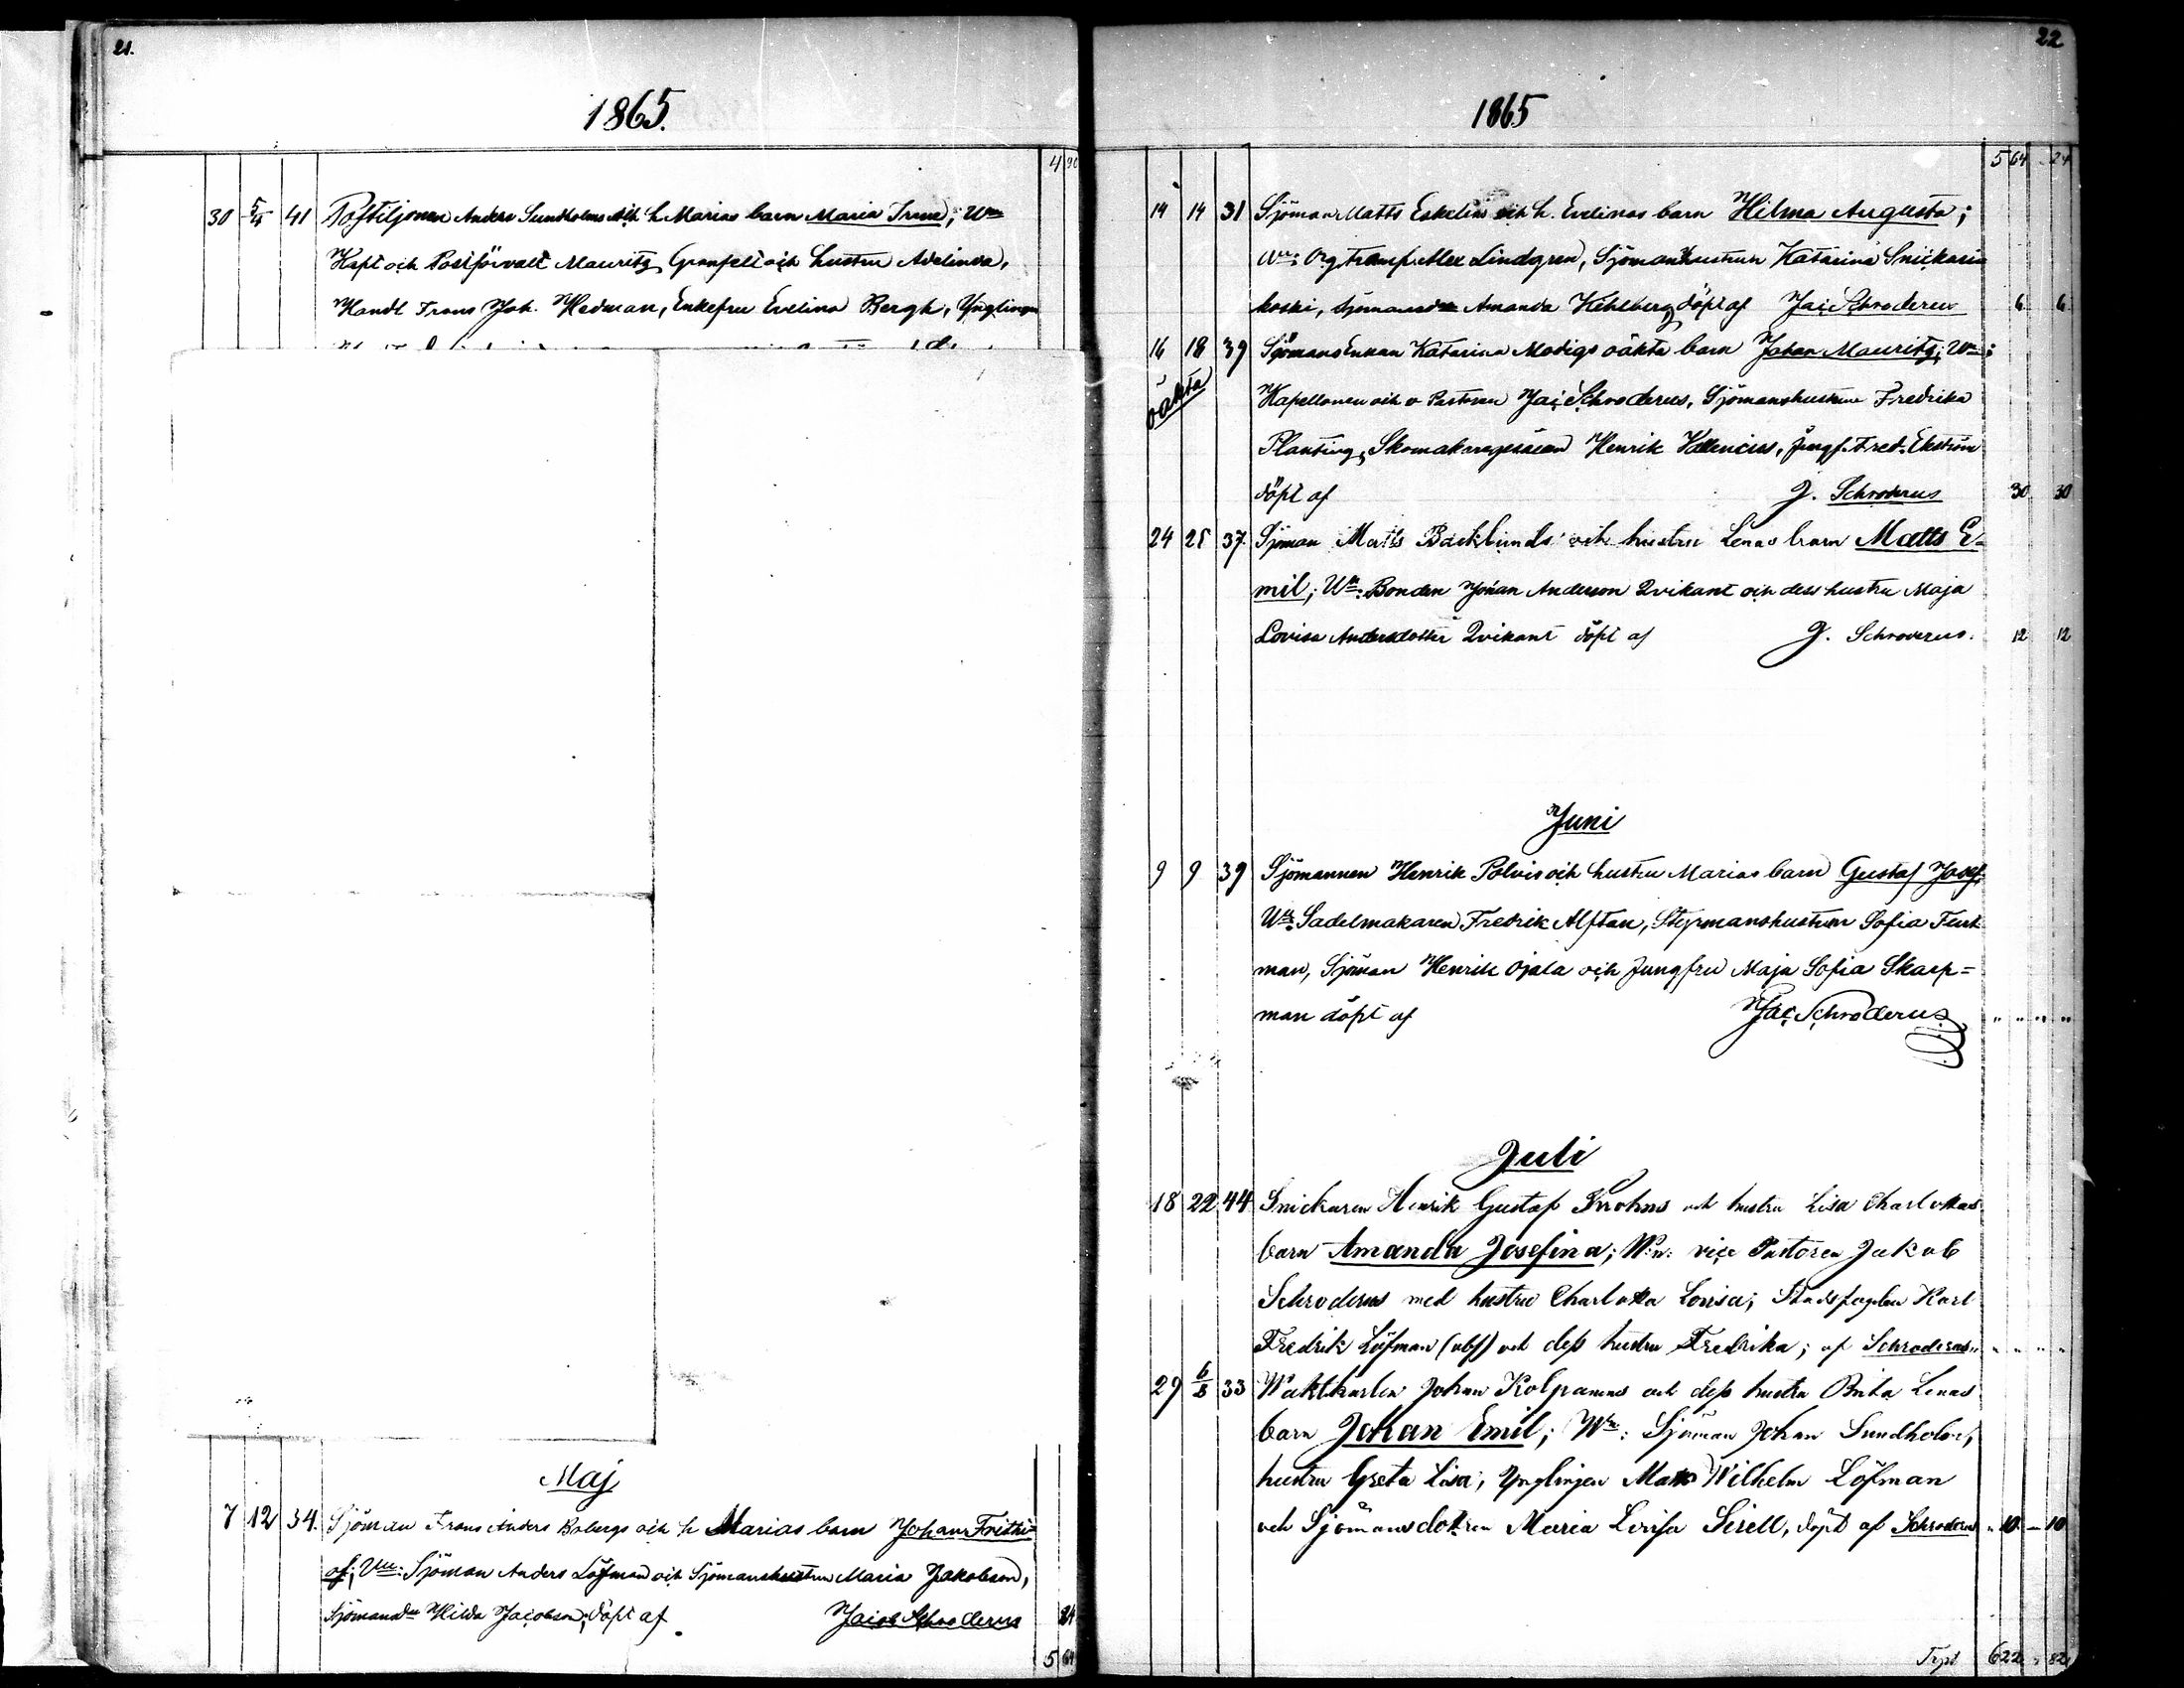 21.
1865.
4 90
30 5/4 41 Postiljonen Anders Sundholms och h Marias barn Maria Irene; Wn
Kapt och Postförvalt Mauritz Granfelt och hustru Adelinda,
Handl Frans Joh. Hedman, Enkefru Evelina Bergh, Ynglingen
Maj
7 12 34. Sjöman Frans Anders Bobergs och h Marias barn Johan Frithi=
of; Wn: Sjöman Anders Löfman och Sjömanshustrun Maria Jakobson,
Sjömansdn Hilda Jacobson, döpt af Jacob Schroderus 24
5 64
22
1865
5 64 24
14 14 31 Sjöman Matts Eskelins och h. Evelinas barn Hilma Augusta;
Wn: Org. tramp. Alex Lindgren, Sjömanshustrun Katarina Snickari
koski, Sjömansdn Amanda Kehlberg, döpt af Jac Schroderus 6 6
16 18 39 Sjömans Enkan Katarina Modigs oäkta barn Johan Mauritz; Wn:
oäkta
Kapellanen och v Pastoren Jac Schroderus, Sjömanshustrun Fredrika
Planting, Skomakaregesällen Henrik Valencius, Jungf. Fred. Ekström
döpt af J. Schroderus 30 30
24 25 37. Sjöman Matts Backlunds och hustru Lenas barn Matts E=
mil; Wn: Bonden Johan Anderson Qvikant och dess hustru Maja
Lovisa Andersdotter Qvikant döpt af J. Schroderus. 12 12
Juni
9 9 39 Sjömannen Henrik Polvis och hustru Marias barn Gustaf Josef;
Wn: Sadelmakaren Fredrik Alftan, Styrmanshustrun Sofia Funt
man, Sjöman Henrik Ojala och Jungfru Maja Sofia Skarp=
man döpt af Jac Schroderus " " " "
Juli
18 22 44 Snickaren Henrik Gustaf Krohns och hustru Lisa Charlottas
barn Amanda Josefina; W:n: vice Pastoren Jakob
Schroderus med hustru Charlotta Lovisa; Stadsfogden Karl
Fredrik Löfman (abf) och dess hustru Fredrika; af Schroderus " " " "
29 6/8 33 Waktkarlen Johan Kolpamas och dess hustru Brita Lenas
barn Johan Emil; Wn: Sjöman Johan Sundholm,
hustru Greta Lisa; Ynglingen Matts Wilhelm Löfman
och Sjömansdottren Maria Lovisa Sirell, döpt af Schroderus " 10 — 10
Trpt 6 22 " 82